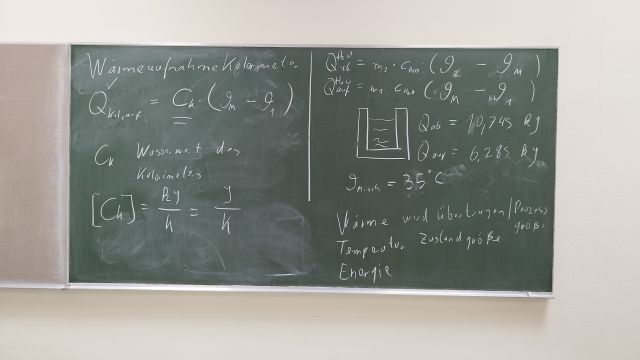 Wärmeaufnahme Kalorimeter
Q Kal, auf = Ck · (ϑm − ϑ1)
Ck: Wasserwert des
Kalorimeters
[Ck] = kJ/K = J/K
Q H2O ab = m2 · cH2O · (ϑ2 − ϑM)
Q H2O auf = m1 · cH2O · (ϑM − ϑ1)
Qab = 10,745 kJ
Qauf = 6,285 kJ
ϑmisch = 35°C
Wärme wird übertragen / Prozess
größe
Temperatur Zustandgröße
Energie